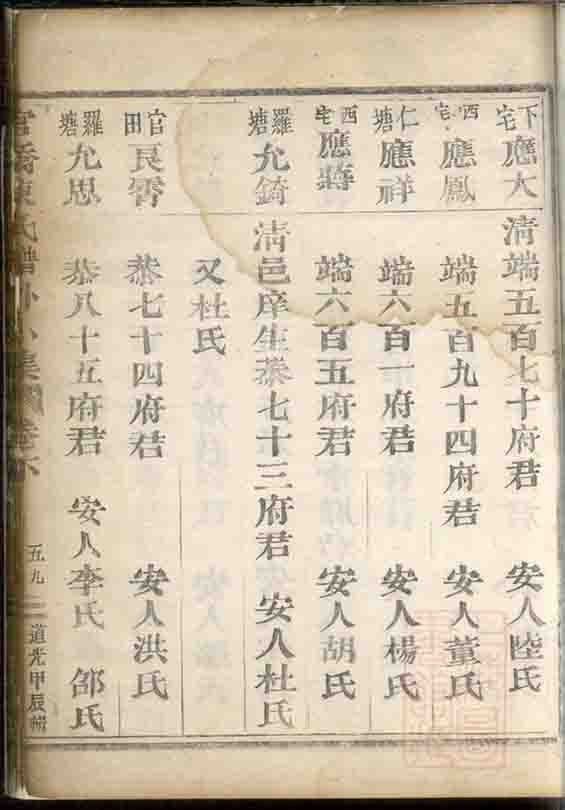 下宅應大 清端五百七十府君 安人陸氏
西宅應鳳 端五百九十四府君 安人董氏
仁塘應祥 端六百一府君 安人楊氏
西宅應蔣 端六百五府君 安人胡氏
羅塘允錡 清邑庠生恭七十三府君 安人杜氏
又杜氏
官田良霄 恭七十四府君 安人洪氏
羅塘允思 恭八十五府君 安人李氏 邵氏
氏譜
五九
道光甲辰輯